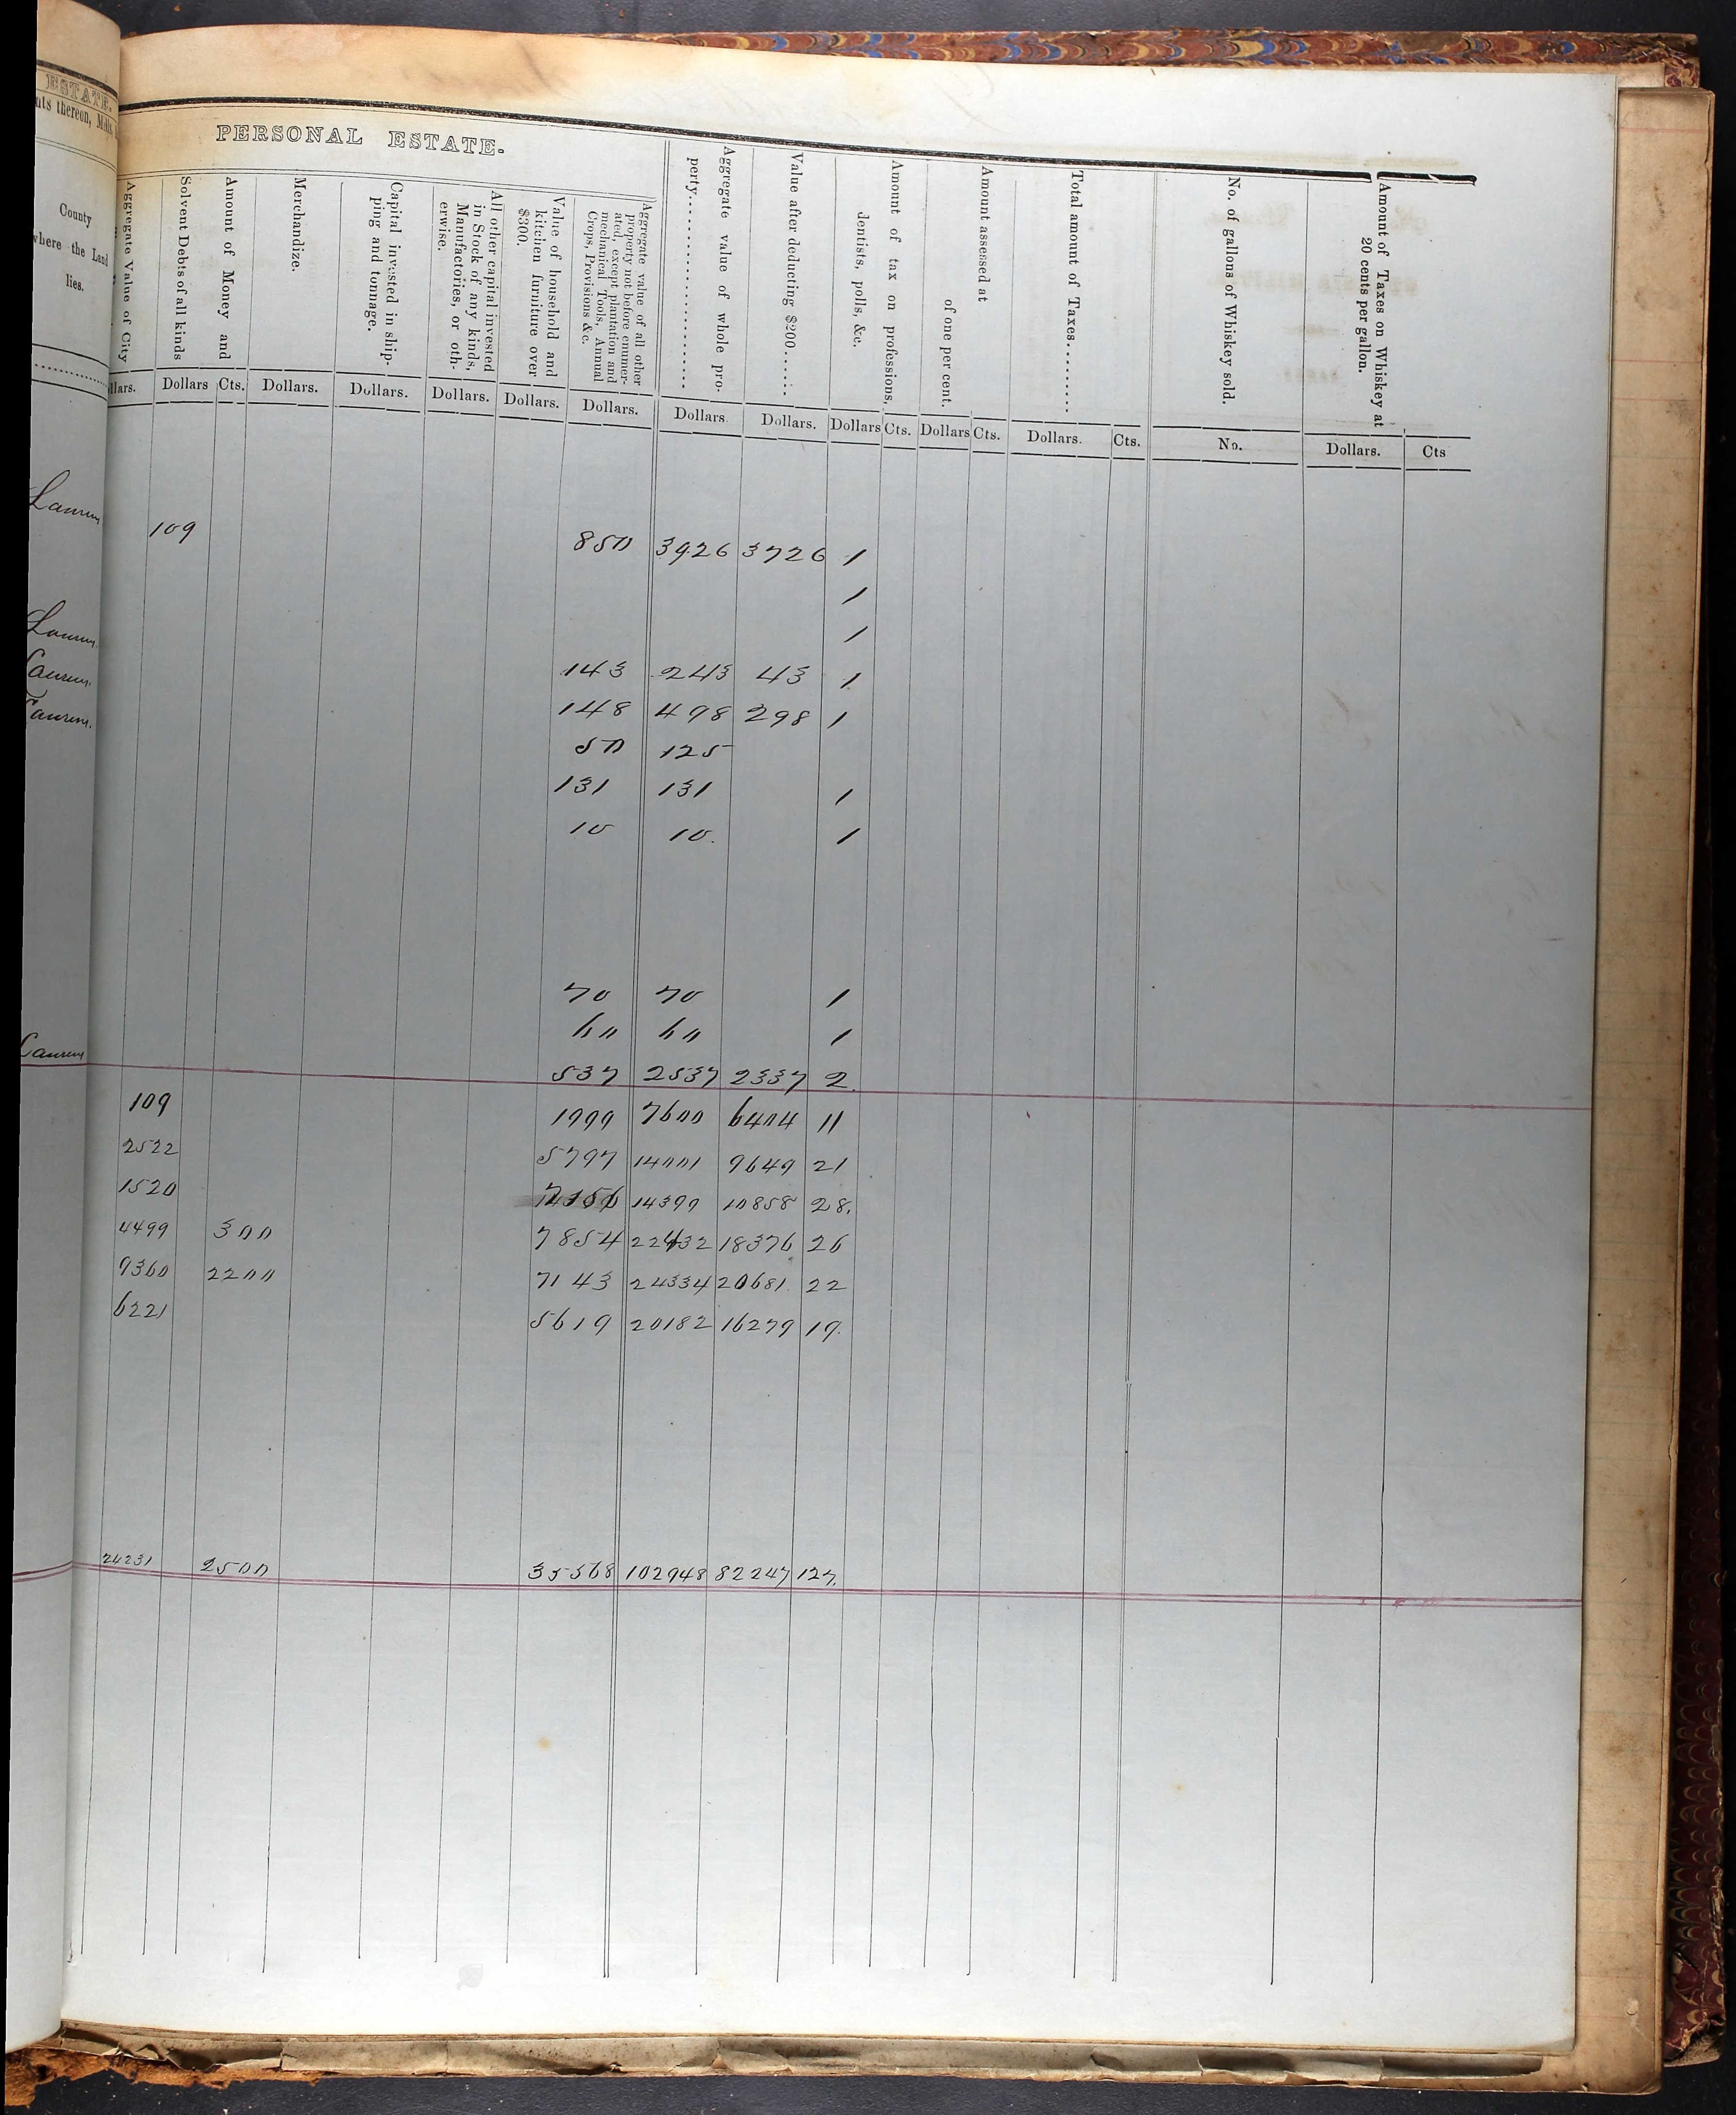 ESTATE.
nts thereon, Mills
County
where the Land
lies.
PERSONAL ESTATE.
Aggregate Value of City
Solvent Debts of all kinds
Amount of Money and
Merchandize.
Capital invested in ship-
ping and tonnage.
All other capital invested
in Stock of any kinds,
Manufactories, or oth-
erwise.
Value of household and
kitchen furniture over
$300.
Aggregate value of all other
property not before enumer-
ated, except plantation and
mechanical Tools, Annual
Crops, Provisions &c.
Aggregate value of whole pro-
perty
Value after deducting $200
Amount of tax on professions,
dentists, polls, &c.
Amount assessed at
of one per cent.
Total amount of Taxes
No. of gallons of Whiskey sold.
Amount of Taxes on Whiskey at
20 cents per gallon.
llars. Dollars Cts. Dollars. Dollars. Dollars. Dollars. Dollars. Dollars. Dollars. Dollars Cts. Dollars Cts. Dollars. Cts. No. Dollars. Cts
Laurens
109 850 3926 3726 1
1
Laurens 1
Laurens. 143 243 43 1
Laurens. 148 498 298 1
50 125
131 131 1
10 10. 1
70 70 1
60 60 1
Laurens 537 2537 2337 2.
109 1999 7600 6404 11
2522 5797 14001 9649 21
1520 14399 10858 28.
4499 300 7854 22432 18376 26
9360 2200 7143 24334 20681 22
6221 5619 20182 16279 19.
24231 2500 35568 102948 82247 127.